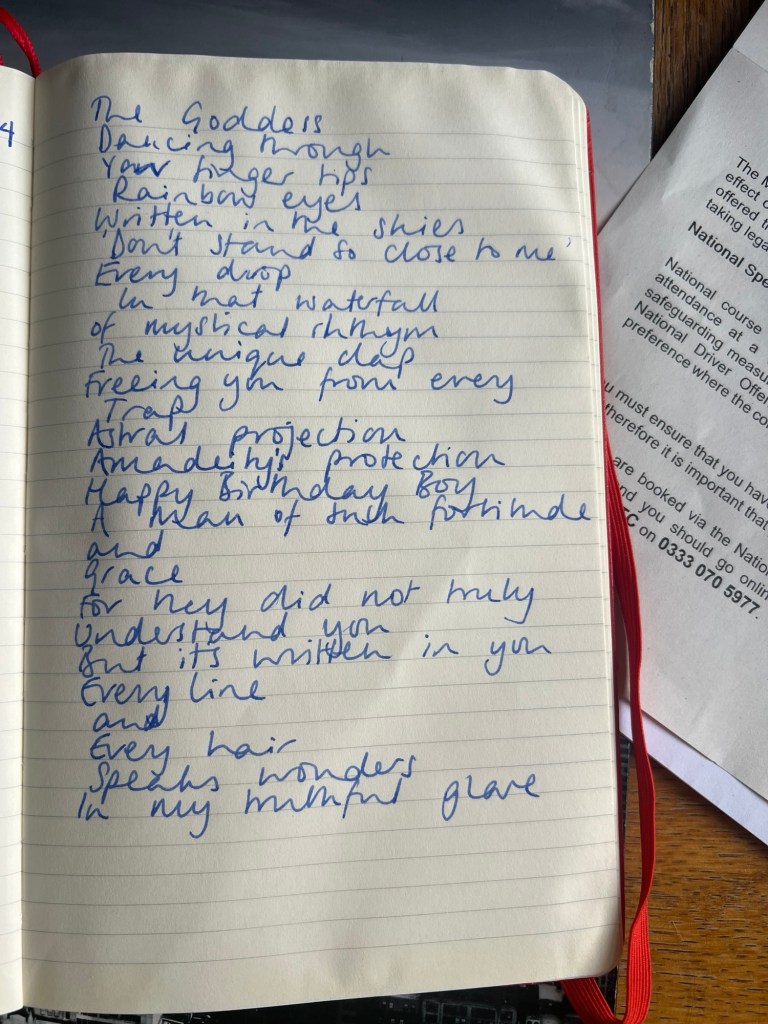 4
The Goddess
Dancing through
Your finger tips
Rainbow eyes
Written in the skies
'Don't stand so close to me'
Every drop
In that waterfall
of mystical rhthym
The unique clap
Freeing you from every
Trap
Astral projection
Amadeity's protection
Happy Birthday Boy
A man of such fortitude
and
grace
For they did not truly
Understand you
But it's written in you
Every line
and
Every hair
Speaks wonders
In my truthful glare
The M
effect o
offered t
taking lega
National Spe
National course
attendance at a
safeguarding measu
National Driver Offe
preference where the co
u must ensure that you have
therefore it is important that
are booked via the Natio
nd you should go onlin
EC on 0333 070 5977.